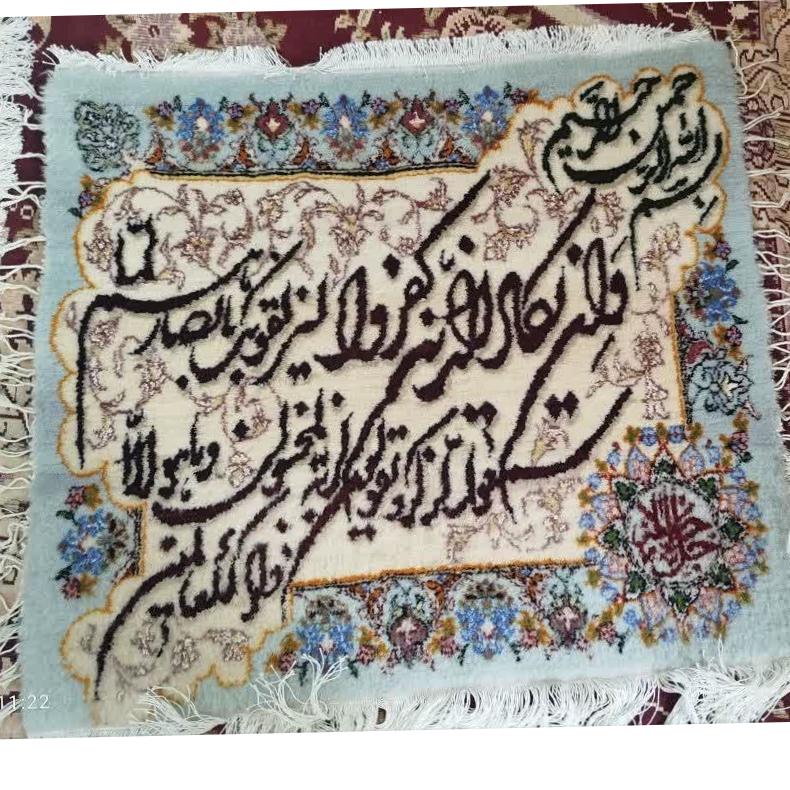 بسم الله الرحمن الرحیم
وان یکاد الذین کفروا لیزلقونک بابصارهم لما
سمعوا الذکر ویقولون انه لمجنون وما هو الا
ذکر للعالمین
11:22